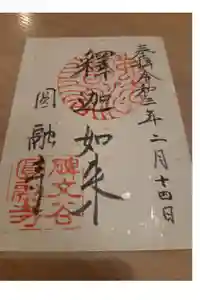 奉拝 令和二年 二月十四日
釋迦如来
圓融寺
碑文谷
圓融寺